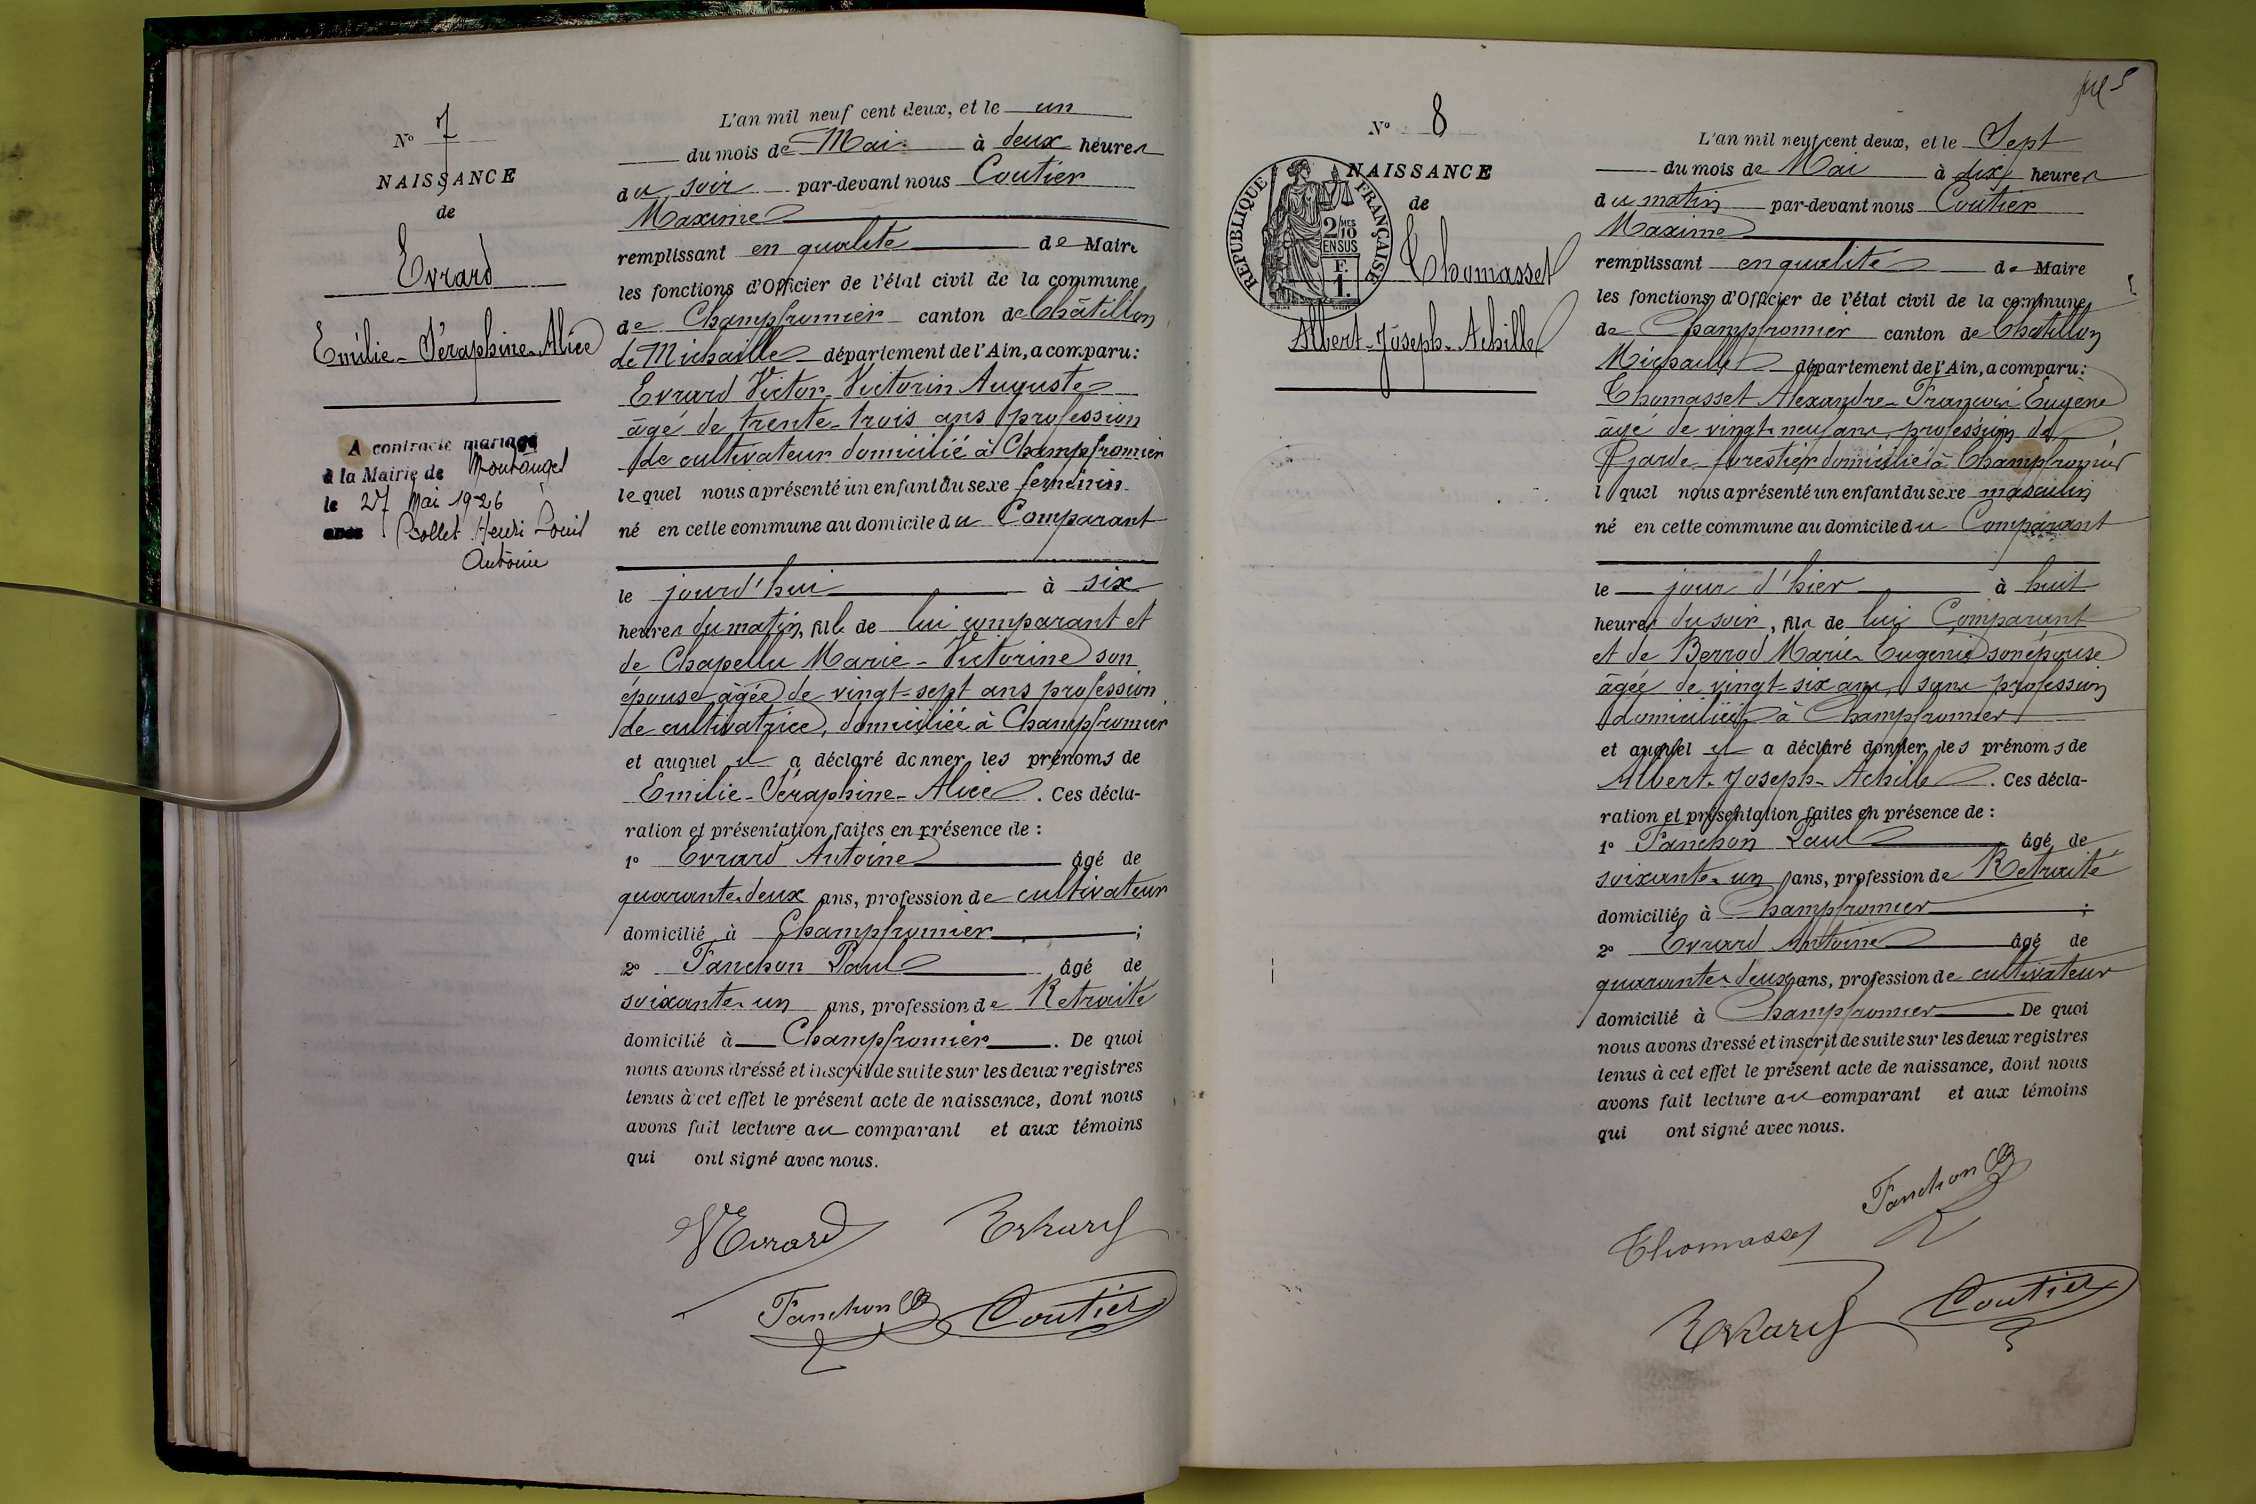 N° 7
NAISSANCE
de
Evrard
Emilie-Séraphine-Alice
A contracté mariage
à la Mairie de Montanges
le 27 Mai 1926
avec Bollet Henri Louis
Antoine
L'an mil neuf cent deux, et le un
du mois de Mai à deux heures
du soir par-devant nous Coutier
Maxime
remplissant en qualité de Maire
les fonctions d'Officier de l'état civil de la commune
de Champfromier canton de Châtillon
de Michaille département de l'Ain, a comparu:
Evrard Victor-Victorin Auguste
âgé de trente-trois ans profession
de cultivateur domicilié à Champfromier
lequel nous a présenté un enfant du sexe féminin
né en cette commune au domicile du Comparant
le jourd'hui à six
heures du matin, fille de lui comparant et
de Chapellu Marie-Victorine son
épouse âgée de vingt-sept ans profession
de cultivatrice, domiciliée à Champfromier
et auquel il a déclaré donner les prénoms de
Emilie-Séraphine-Alice. Ces décla-
ration et présentation faites en présence de :
1° Evrard Antoine âgé de
quarante-deux ans, profession de cultivateur
domicilié à Champfromier ;
2° Tanchon Paul âgé de
soixante-un ans, profession de Retraité
domicilié à Champfromier. De quoi
nous avons dressé et inscrit de suite sur les deux registres
tenus à cet effet le présent acte de naissance, dont nous
avons fait lecture au comparant et aux témoins
qui ont signé avec nous.
VEvrard Evrard
Tanchon Coutier
N° 8
NAISSANCE
de
RÉPUBLIQUE FRANÇAISE
2/10 MES
EN SUS
F.
1.
Thomasset
Albert-Joseph-Achille
L'an mil neuf cent deux, et le Sept
du mois de Mai à dix heures
du matin par-devant nous Coutier
Maxime
remplissant en qualité de Maire
les fonctions d'Officier de l'état civil de la commune
de Champfromier canton de Châtillon
Michaille département de l'Ain, a comparu:
Thomasset Alexandre-François Eugène
âgé de vingt-neuf ans, profession de
Garde-forestier domicilié à Champfromier
lequel nous a présenté un enfant du sexe masculin
né en cette commune au domicile du Comparant
le jour d'hier à huit
heures du soir, fils de lui Comparant
et de Berrod Marie-Eugénie son épouse
âgée de vingt-six ans, sans profession
domiciliée à Champfromier
et auquel il a déclaré donner les prénoms de
Albert-Joseph-Achille. Ces décla-
ration et présentation faites en présence de :
1° Tanchon Paul âgé de
soixante-un ans, profession de Retraité
domicilié à Champfromier ;
2° Evrard Antoine âgé de
quarante-deux ans, profession de cultivateur
domicilié à Champfromier. De quoi
nous avons dressé et inscrit de suite sur les deux registres
tenus à cet effet le présent acte de naissance, dont nous
avons fait lecture au comparant et aux témoins
qui ont signé avec nous.
Tanchon
Thomasset
Evrard Coutier